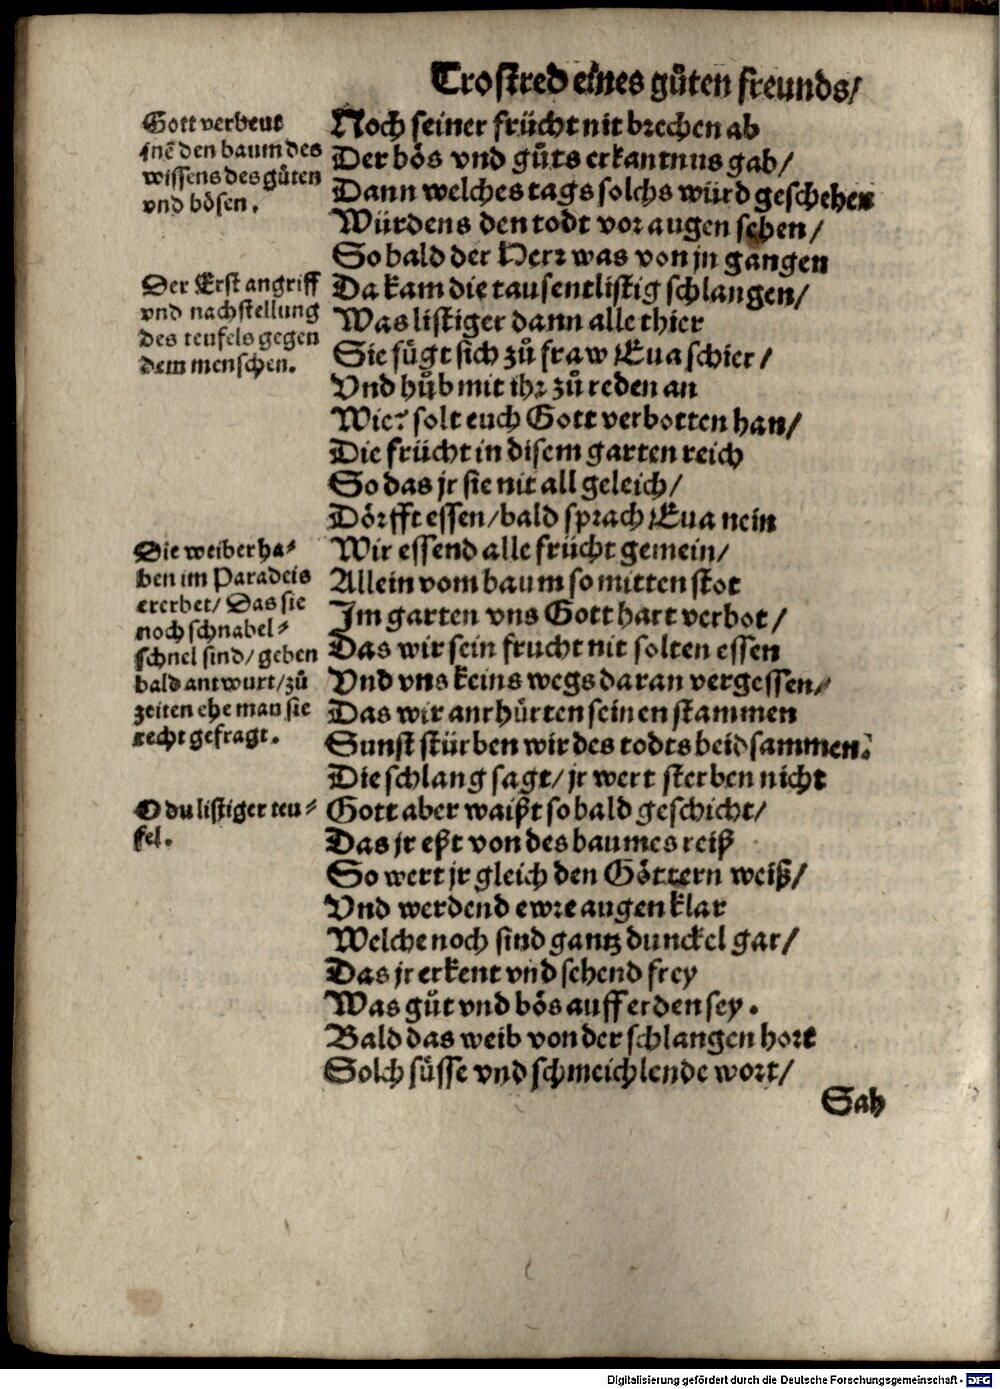 Trostred eines gůten freunds/
Gott verbeut
jnẽ den baum des
wissens des gůten
vnd bösen.
Noch seiner frücht nit brechen ab
Der bös vnd gůts erkantnus gab/
Dann welches tags solchs würd geschehen
Würdens den todt vor augen sehen/
So bald der Herr was von jn gangen
Der Erst angriff
vnd nachstellung
des teufels gegen
dem menschen.
Da kam die tausentlistig schlangen/
Was listiger dann alle thier
Sie fůgt sich zů fraw Eua schier/
Vnd hůb mit ihr zů reden an
Wie? solt euch Gott verbotten han/
Die frücht in disem garten reich
So das jr sie nit all geleich/
Dörfft essen/bald sprach Eua nein
Die weiber ha⸗
ben im Paradeis
ererbet/ Das sie
noch schnabel⸗
schnel sind/ geben
bald antwurt/zů
zeiten ehe man sie
recht gefragt.
Wir essend alle frücht gemein/
Allein vom baum so mitten stot
Im garten vns Gott hart verbot/
Das wir sein frucht nit solten essen
Vnd vns keins wegs daran vergessen/
Das wir anrhürten seinen stammen
Sunst stürben wir des todts beidsammen.
Die schlang sagt/ jr wert sterben nicht
O du listiger teu⸗
fel.
Gott aber waißt so bald geschicht/
Das jr eßt von des baumes reiß
So wert jr gleich den Göttern weiß/
Vnd werdend ewre augen klar
Welche noch sind gantz dunckel gar/
Das jr erkent vnd sehend frey
Was gůt vnd bös auff erden sey.
Bald das weib von der schlangen hort
Solch sůsse vnd schmeichlende wort/
Sah
Digitalisierung gefördert durch die Deutsche Forschungsgemeinschaft - DFG